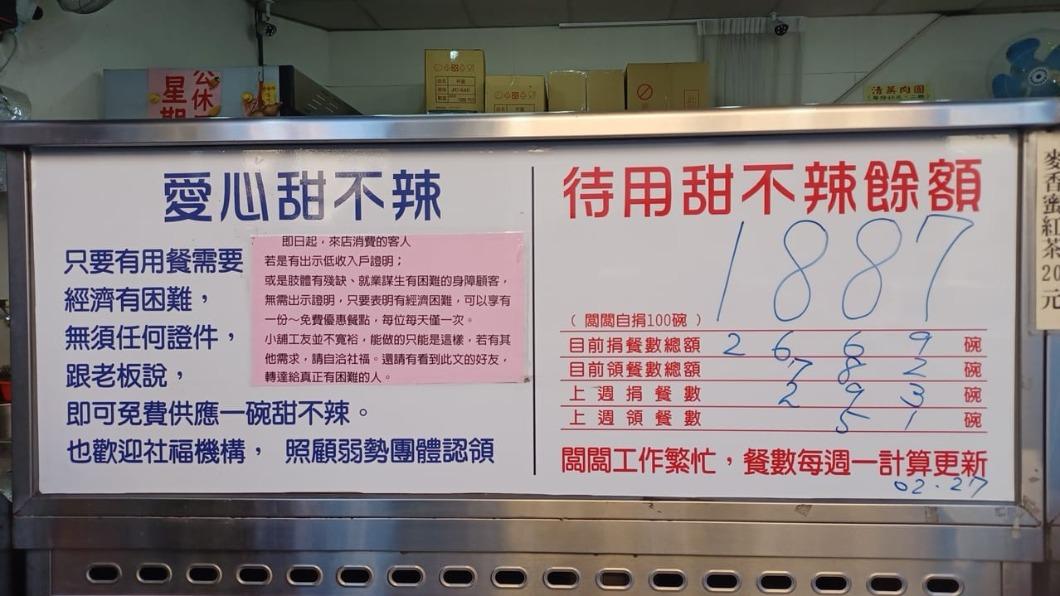 公休
星期
清蒸肉圓
麥香蜜紅茶20元
愛心甜不辣
只要有用餐需要
經濟有困難，
無須任何證件，
跟老板說，
即可免費供應一碗甜不辣。
也歡迎社福機構， 照顧弱勢團體認領
即日起，來店消費的客人
若是有出示低收入戶證明；
或是肢體有殘缺、就業謀生有困難的身障顧客，
無需出示證明，只要表明有經濟困難，可以享有
一份～免費優惠餐點，每位每天僅一次。
小舖工友並不寬裕，能做的只能是這樣，若有其
他需求，請自洽社福。還請有看到此文的好友，
轉達給真正有困難的人。
待用甜不辣餘額
1887
（闆闆自捐100碗）
目前捐餐數總額 2669 碗
目前領餐數總額 782 碗
上週捐餐數 293 碗
上週領餐數 51 碗
闆闆工作繁忙，餐數每週一計算更新
02.27